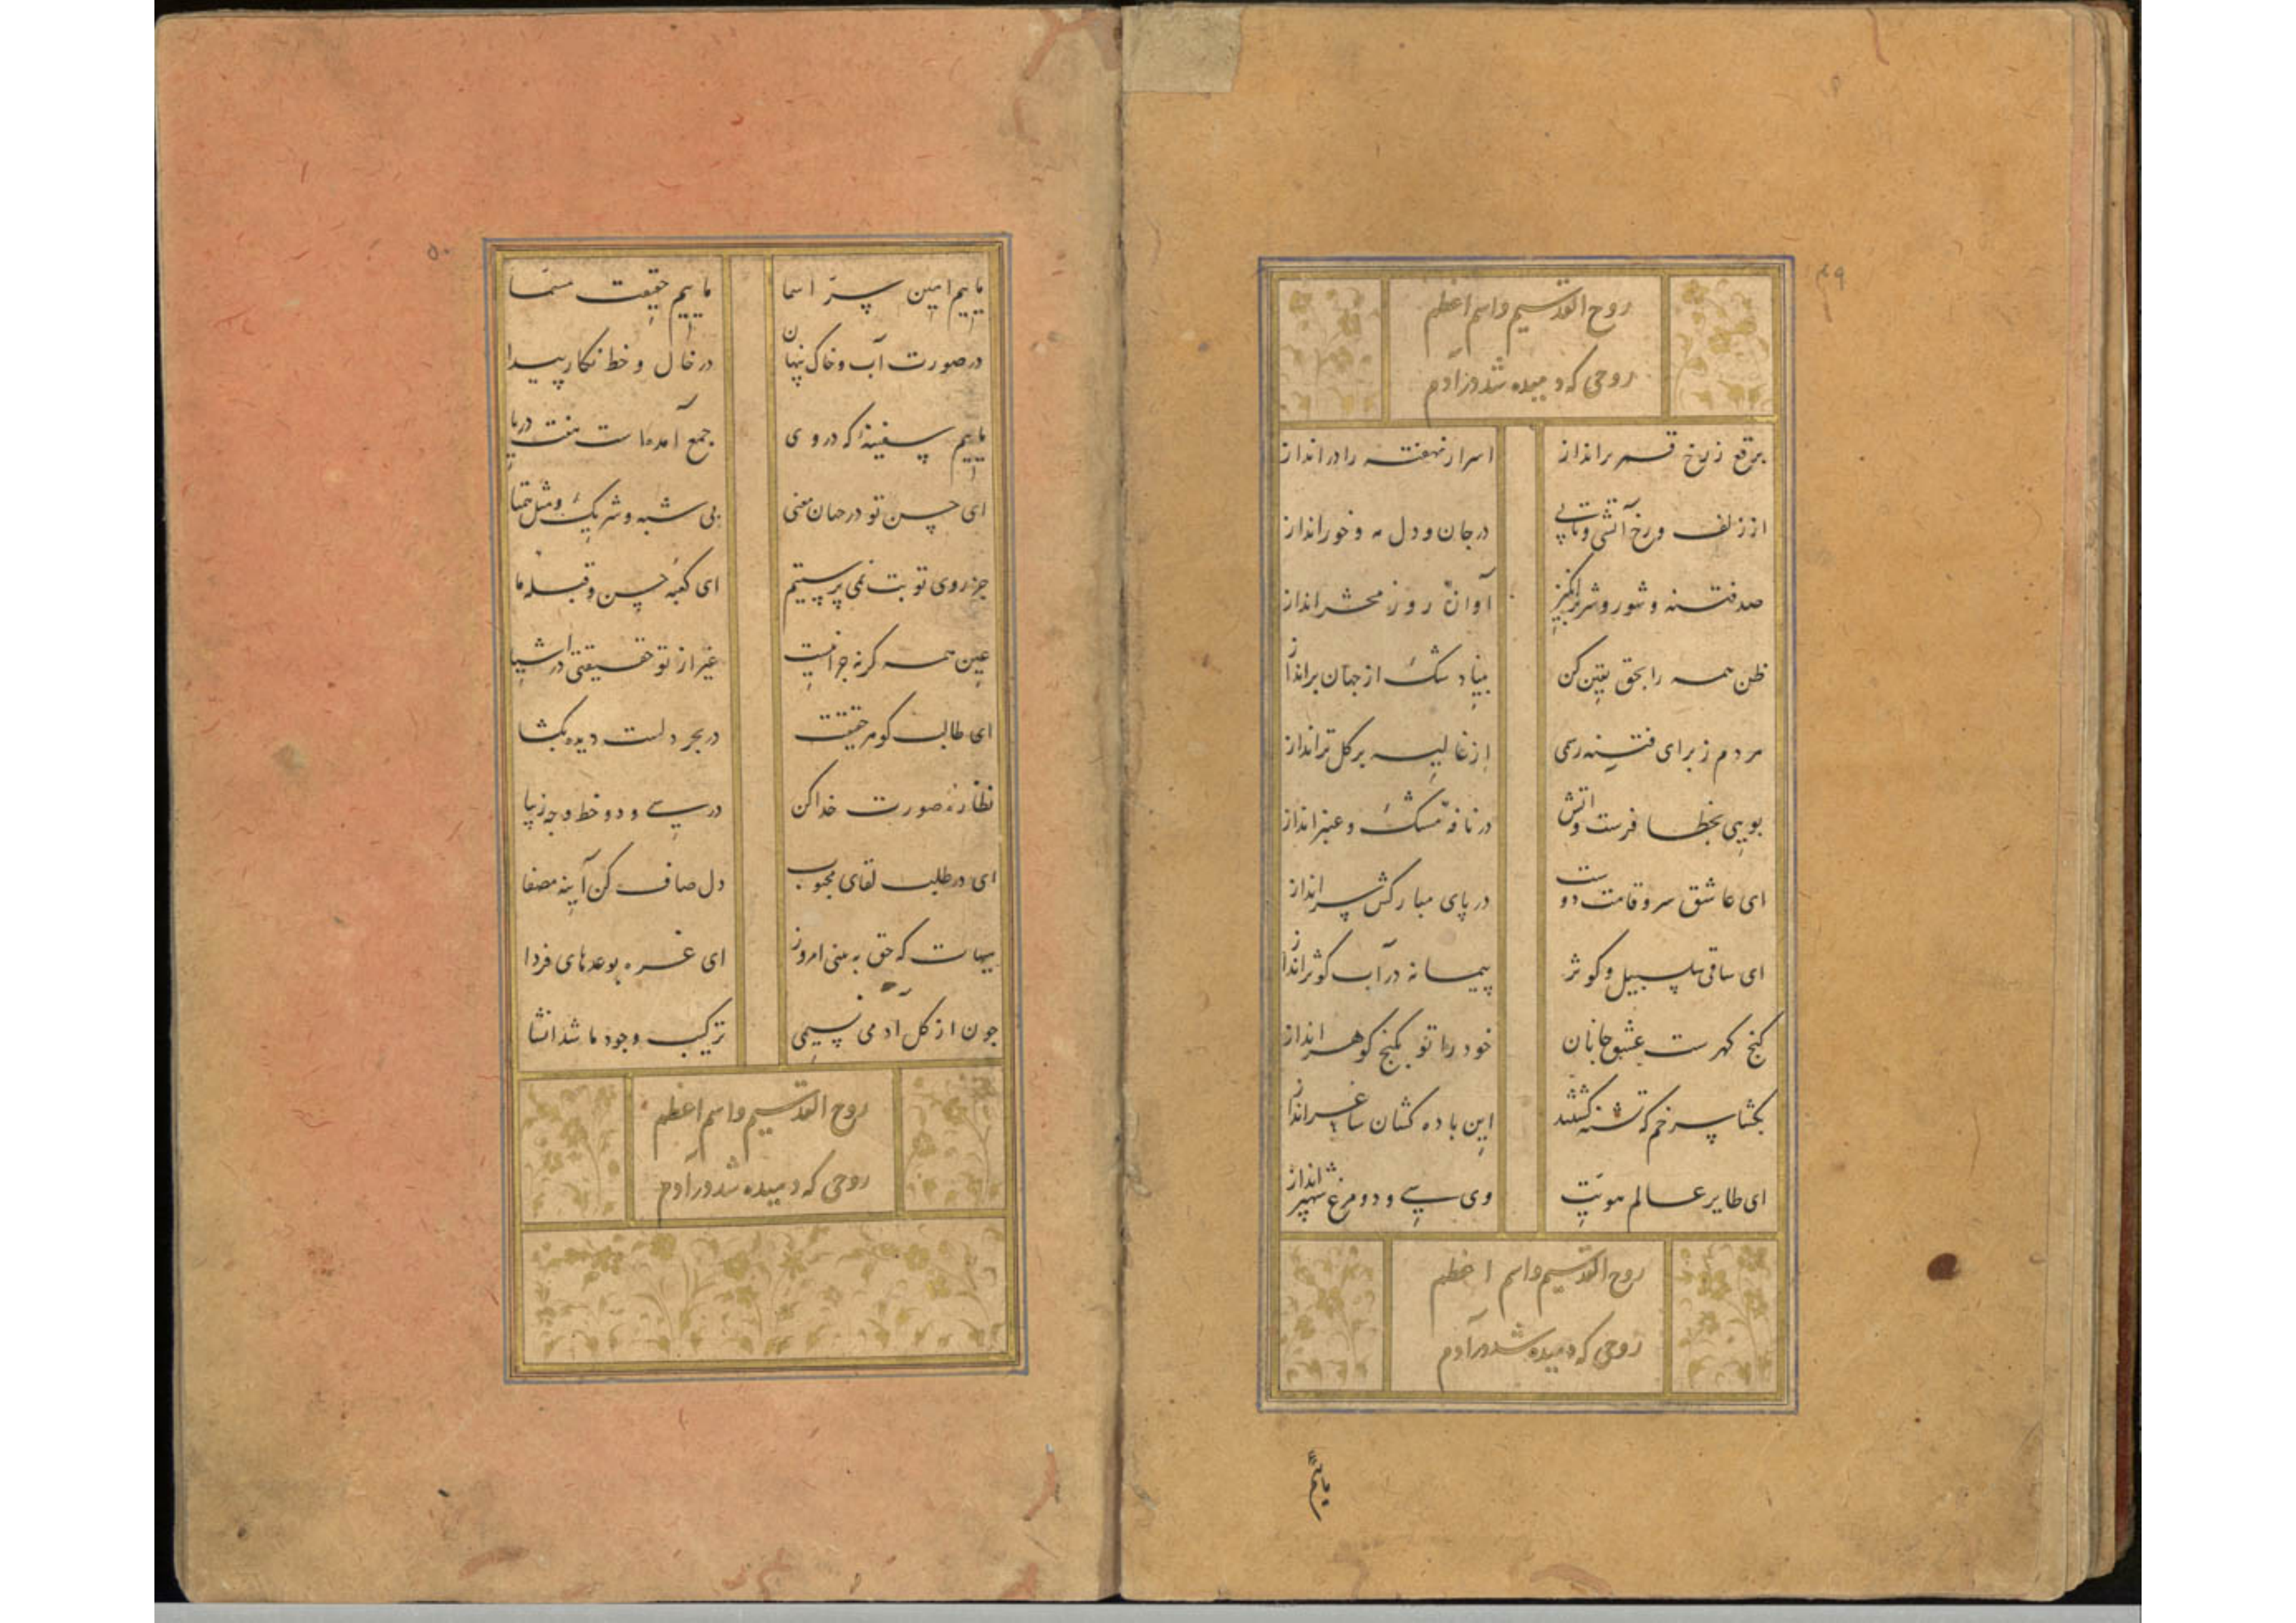 ۴۹
روح القدسیم و اسم اعظم
روحی که دمیده شد در آدم
برقع ز رخ قمر برانداز اسرار نهفته را درانداز
از زلف و رخ آتشی و تابی در جان و دل مه و خور انداز
صد فتنه و شور و شر برانگیز آوازهٔ روز محشر انداز
ظن همه را بحق یقین کن بنیاد شک از جهان برانداز
مردم ز برای فتنه رسمی از غالیه بر گل تر انداز
بویی بخطا فرست و آتش در نافهٔ مشک و عنبر انداز
ای عاشق سرو قامت دوست در پای مبارکش سر انداز
ای ساقی سلسبیل و کوثر پیمانه در آب کوثر انداز
گنج گهرست عشق جانان خود را تو بگنج گوهر انداز
بگشا سر خم که تشنه گشتند این باده کشان ساغر انداز
ای طایر عالم هویت وی سی و دو مرغ شهپر انداز
روح القدسیم و اسم اعظم
روحی که دمیده شد در آدم
ماییم
۵۰
ماییم امین سرّ اسما ماییم حقیقت مسمّا
در صورت آب و خاک پنهان در خال و خط نگار پیدا
ماییم سفینهٔ که در وی جمع آمده‌است هفت دریا
ای حسن تو در جهان معنی بی شبه و شریک و مثل و همتا
جز روی تو بت نمی پرستیم ای کعبهٔ حسن و قبله ما
عین همه گر نهٔ چرا نیست غیر از تو حقیقتی در اشیا
ای طالب گوهر حقیقت در بحر دلست دیده بگشا
نظارهٔ صورت خدا کن در سی و دو خط وجه زیبا
ای در طلب لقای محبوب دل صاف کن آینه مصفا
هیهات که حق به بینی امروز ای غره بوعدهای فردا
چون از گل آدمی نسیمی ترکیب وجود ما شد انشا
روح القدسیم و اسم اعظم
روحی که دمیده شد در آدم